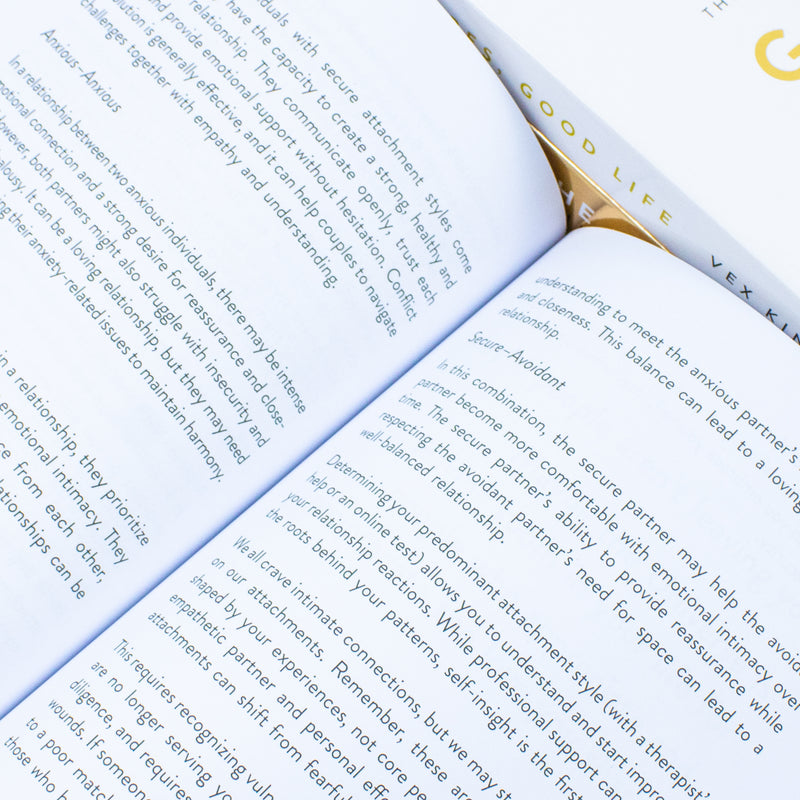 with secure attachment styles come
have the capacity to create a strong, healthy and
relationship. They communicate openly, trust each
and provide emotional support without hesitation. Conflict
is generally effective, and it can help couples to navigate
challenges together with empathy and understanding.
Anxious–Anxious
In a relationship between two anxious individuals, there may be intense
emotional connection and a strong desire for reassurance and close-
However, both partners might also struggle with insecurity and
It can be a loving relationship, but they may need
their anxiety-related issues to maintain harmony.
in a relationship, they prioritize
emotional intimacy. They
from each other,
can be
understanding to meet the anxious partner's
and closeness. This balance can lead to a loving
relationship.
Secure–Avoidant
In this combination, the secure partner may help the
partner become more comfortable with emotional intimacy over
time. The secure partner's ability to provide reassurance while
respecting the avoidant partner's need for space can lead to a
well-balanced relationship.
Determining your predominant attachment style (with a therapist's
help or an online test) allows you to understand and start
your relationship reactions. While professional support can
the roots behind your patterns, self-insight is the first
We all crave intimate connections, but we may
on our attachments. Remember, these are
shaped by your experiences, not core
empathetic partner and personal
attachments can shift from
This requires recognizing
are no longer serving
diligence, and requires
wounds. If someone
to a poor match
those who
GOOD LIFE
VEX KIN
HE
TH
G